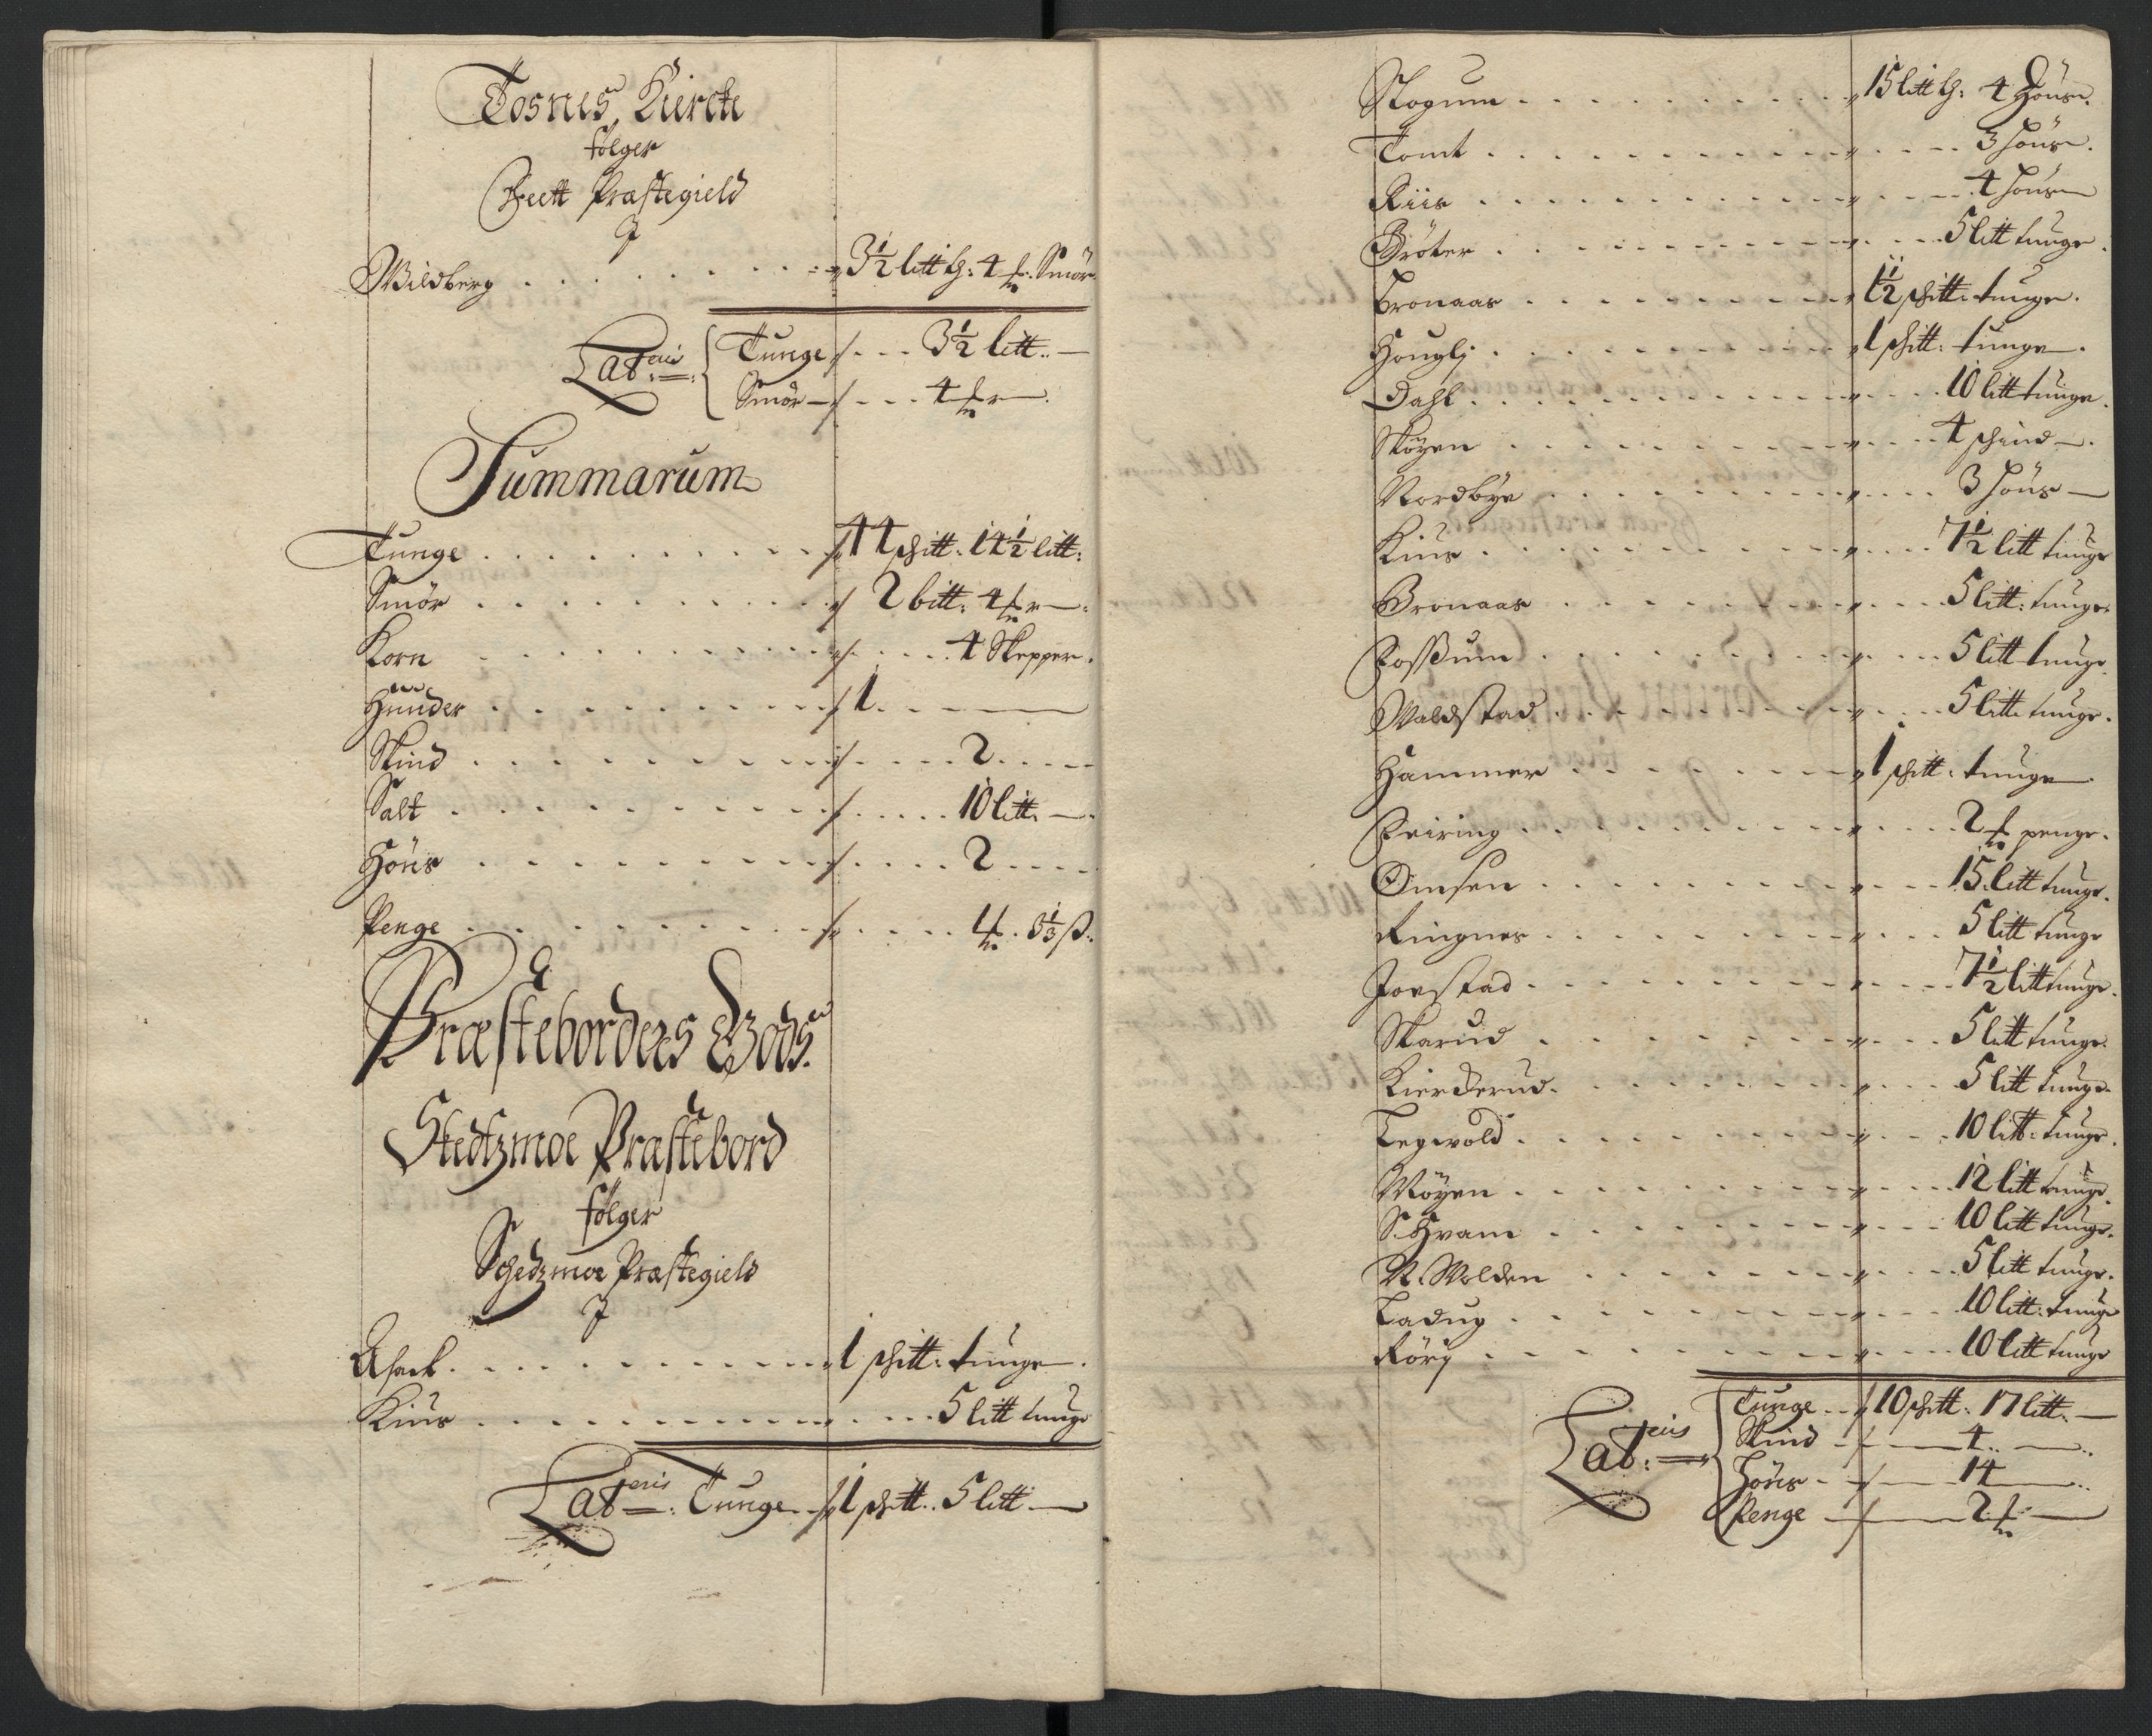 Tosnes Kiercke
følger
Eeett Præstegield
J
Wildberg . . . . . . . . . 3½ litt ℔: 4 ℔. Smör
Lateris Tunge . . . 3½ litt. —
Smör — . . . 4 ℔r —
Summarum
Tunge . . . . . . . . . 44 schitt. 14½ litt:
Smör . . . . . . . . . 2 bitt: 4 ℔r —
Korn . . . . . . . . . 4 Skepper.
Huuder . . . . . . . . . 1 . — —
Skind . . . . . . . . . 2 . . . .
Salt . . . . . . . . . 10 litt. —
Höns . . . . . . . . . 2 . . . .
Penge . . . . . . . . . 3⅓ ß.
Præsteborders Gods.
Skedtzmoe Præstebord
følger
Schedzmoe Præstegield
J
Asack . . . . . . . . . 1 schitt: tunge.
Kius . . . . . . . . . 5 litt tunge
Lateris: Tunge 1 schitt. 5 litt —
Skogum . . . . . . . . . 15 litt ℔: 4 Höns.
Tomt . . . . . . . . . 3 Höns.
Riis . . . . . . . . . 4 Höns
Bröter . . . . . . . . . 5 litt tunge.
Bronaas . . . . . . . . . 1½ schitt. tunge.
Hougly . . . . . . . . . 1 schitt: tunge.
Dahl . . . . . . . . . 10 litt tunge.
Skøyen . . . . . . . . . 4 schind —.
Nordbye . . . . . . . . . 3 Höns —
Kius . . . . . . . . . 7½ litt tunge
Bronaas . . . . . . . . . 5 litt: tunge.
Fossum . . . . . . . . . 5 litt tunge.
Waldstad . . . . . . . . . 5 litt tunge.
Hammer . . . . . . . . . 1 schitt: tunge.
Feiring . . . . . . . . . 2 ℔ penge.
Omsen . . . . . . . . . 15 litt tunge.
Ringnes . . . . . . . . . 5 litt tunge
Joestad . . . . . . . . . 7½ litt tunge.
Skarud . . . . . . . . . 5 litt tunge.
Kierderud . . . . . . . . . 5 litt tunge.
Legwold . . . . . . . . . 10 litt: tunge.
Møyen . . . . . . . . . 12 litt tunge.
S: Hvam . . . . . . . . . 10 litt tunge.
N. Wolden . . . . . . . . . 5 litt tunge.
Ladug . . . . . . . . . 10 litt: tunge
Rörg . . . . . . . . . 10 litt tunge
Lateris Tunge . . 10 schitt. 17 litt. —
Skind — 4 . —
Höns — 14 —
Penge — 2 ℔ —